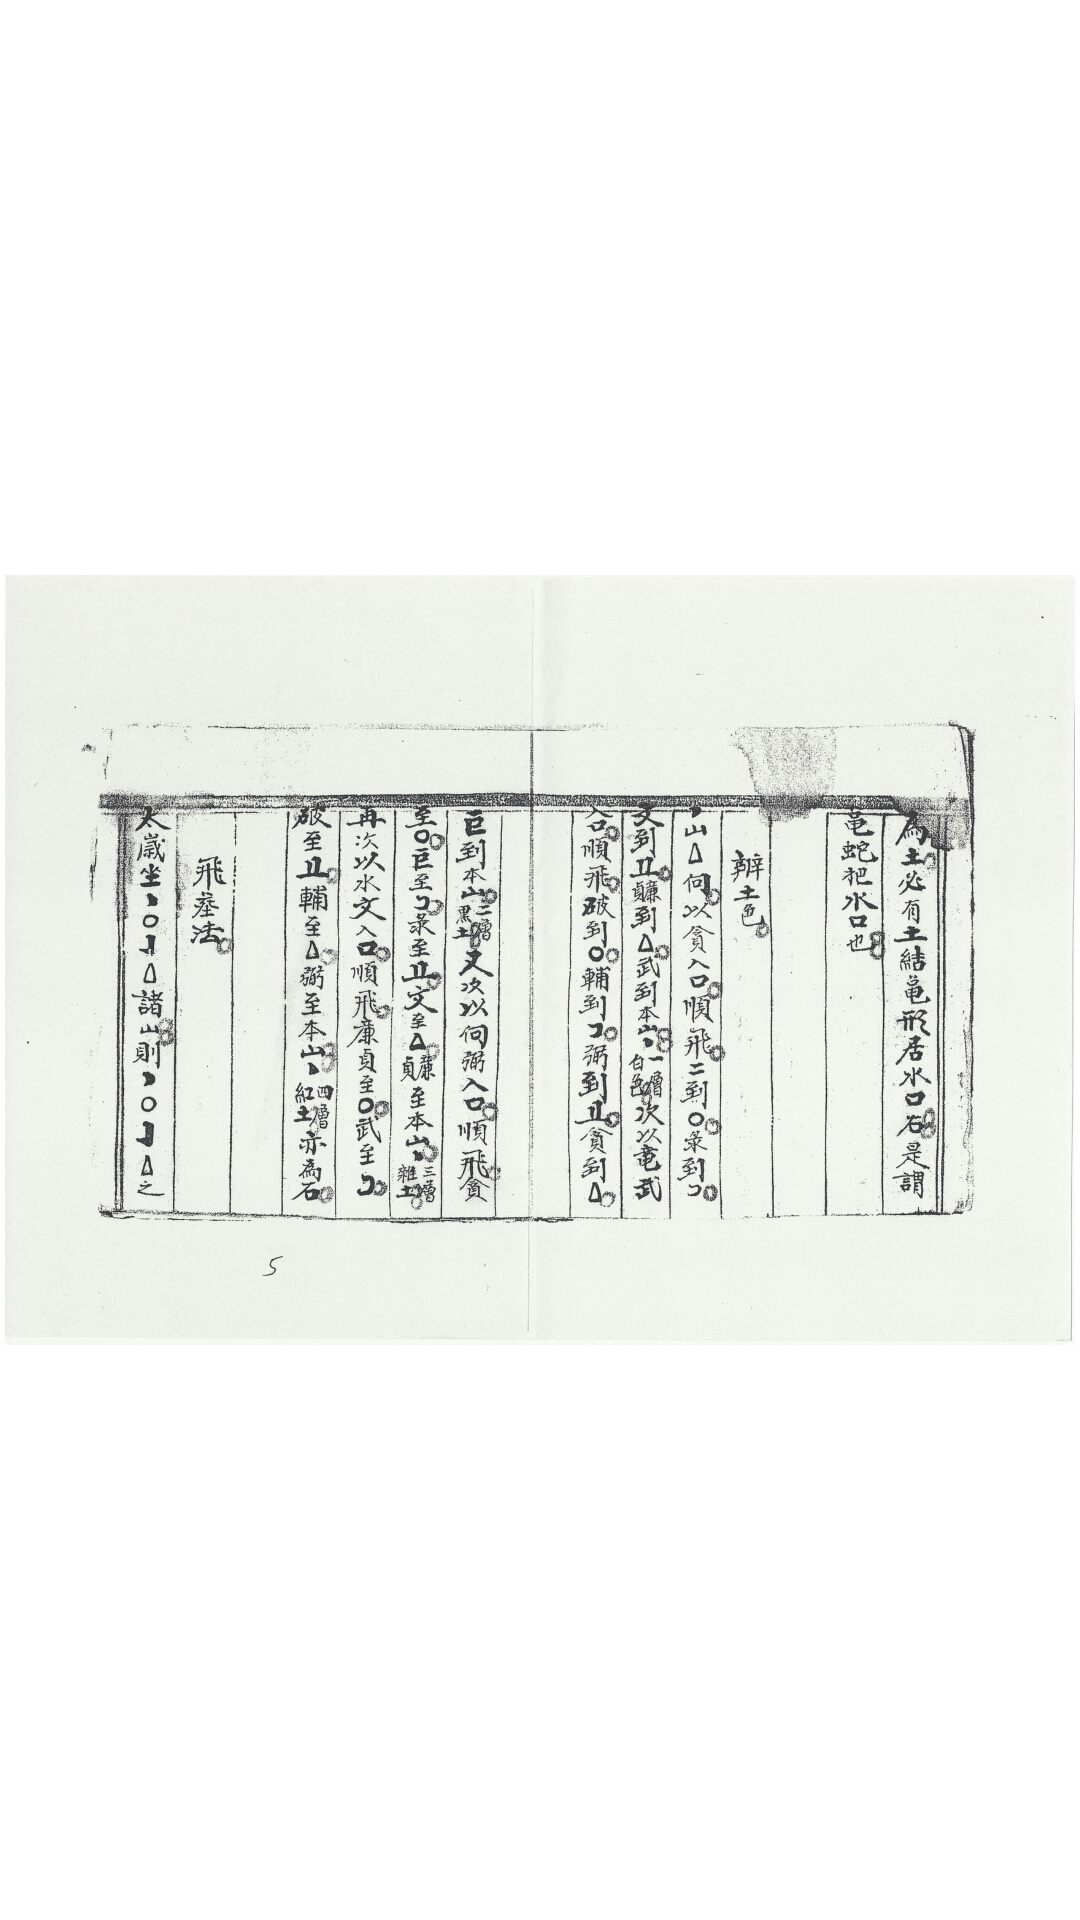 為土必有土結亀形居水口右是謂
亀蛇把水口也
辨土色
丶山△向以貪入口順飛二到〇彔到コ
文到䒑廉貞到△武到本山丶一層白色次以竜武
入口順飛破到〇輔到コ弼到䒑貪到△
巨到本山二層黒土又次以向弼入口順飛貪
至〇巨至コ彔至䒑文至△廉貞至本山丶三層雑土
再次以水文入口順飛廉貞至〇武至コ
破至䒑輔至△弼至本山丶四層紅土亦為石
飛墓法
太歲坐丶〇㇆△諸山則丶〇㇆△之
5